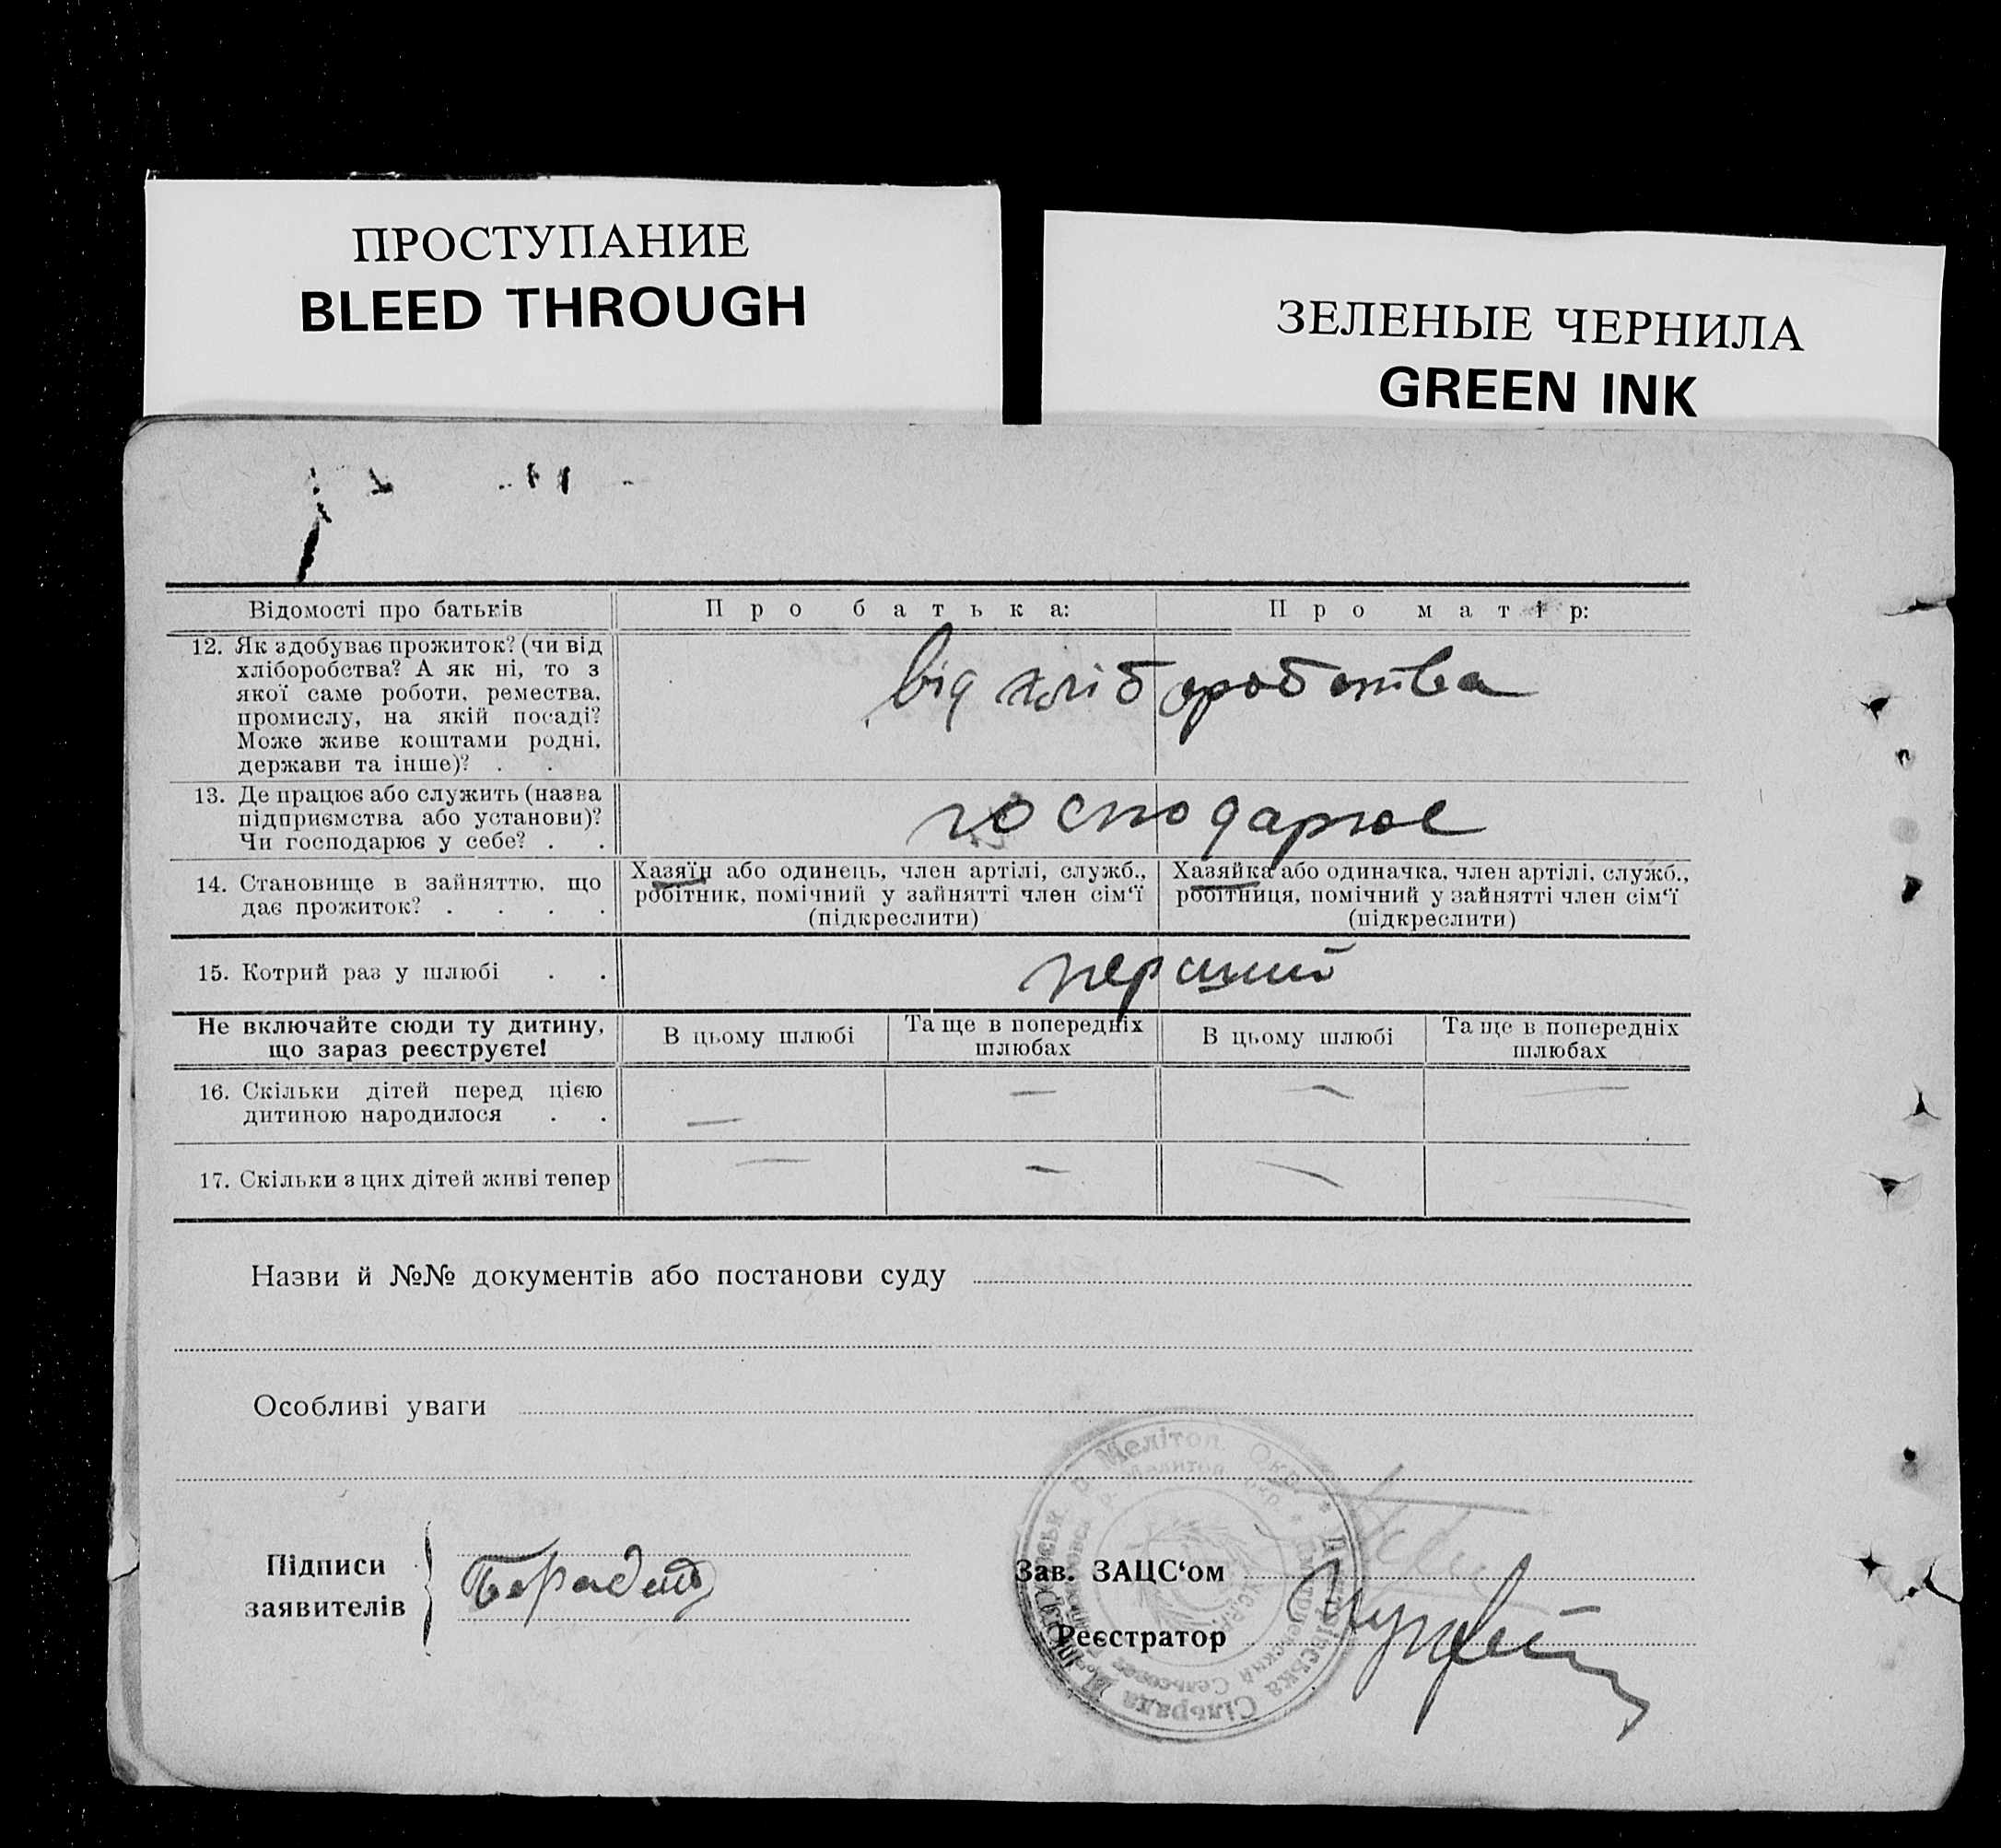 ПРОСТУПАНИЕ
BLEED THROUGH
ЗЕЛЕНЫЕ ЧЕРНИЛА
GREEN INK
Відомості про батьків
Про батька:
Про матір:
12. Як здобуває прожиток? (чи від
хліборобства? А як ні, то з
якої саме роботи, ремества,
промислу, на якій посаді?
Може живе коштами родні,
держави та інше)? . .
від хліборобства
13. Де працює або служить (назва
підприємства або установи)?
Чи господарює у себе? . .
господарює
14. Становище в зайняттю, що
дає прожиток? . . . .
Хазяїн або одинець, член артілі, служб.,
робітник, помічний у зайнятті член сім‘ї
(підкреслити)
Хазяйка або одиначка, член артілі, служб.,
робітниця, помічний у зайнятті член сім‘ї
(підкреслити)
15. Котрий раз у шлюбі . .
перший
Не включайте сюди ту дитину,
що зараз реєструєте!
В цьому шлюбі
Та ще в попередніх
шлюбах
В цьому шлюбі
Та ще в попередніх
шлюбах
16. Скільки дітей перед цією
дитиною народилося . .
— — — —
17. Скільки з цих дітей живі тепер
— — — —
Назви й №№ документів або постанови суду
Особливі уваги
Підписи
заявителів
Зав. ЗАЦС‘ом
Реєстратор
р. Мелітоп. Окр. * Дмитрівська Сільрада